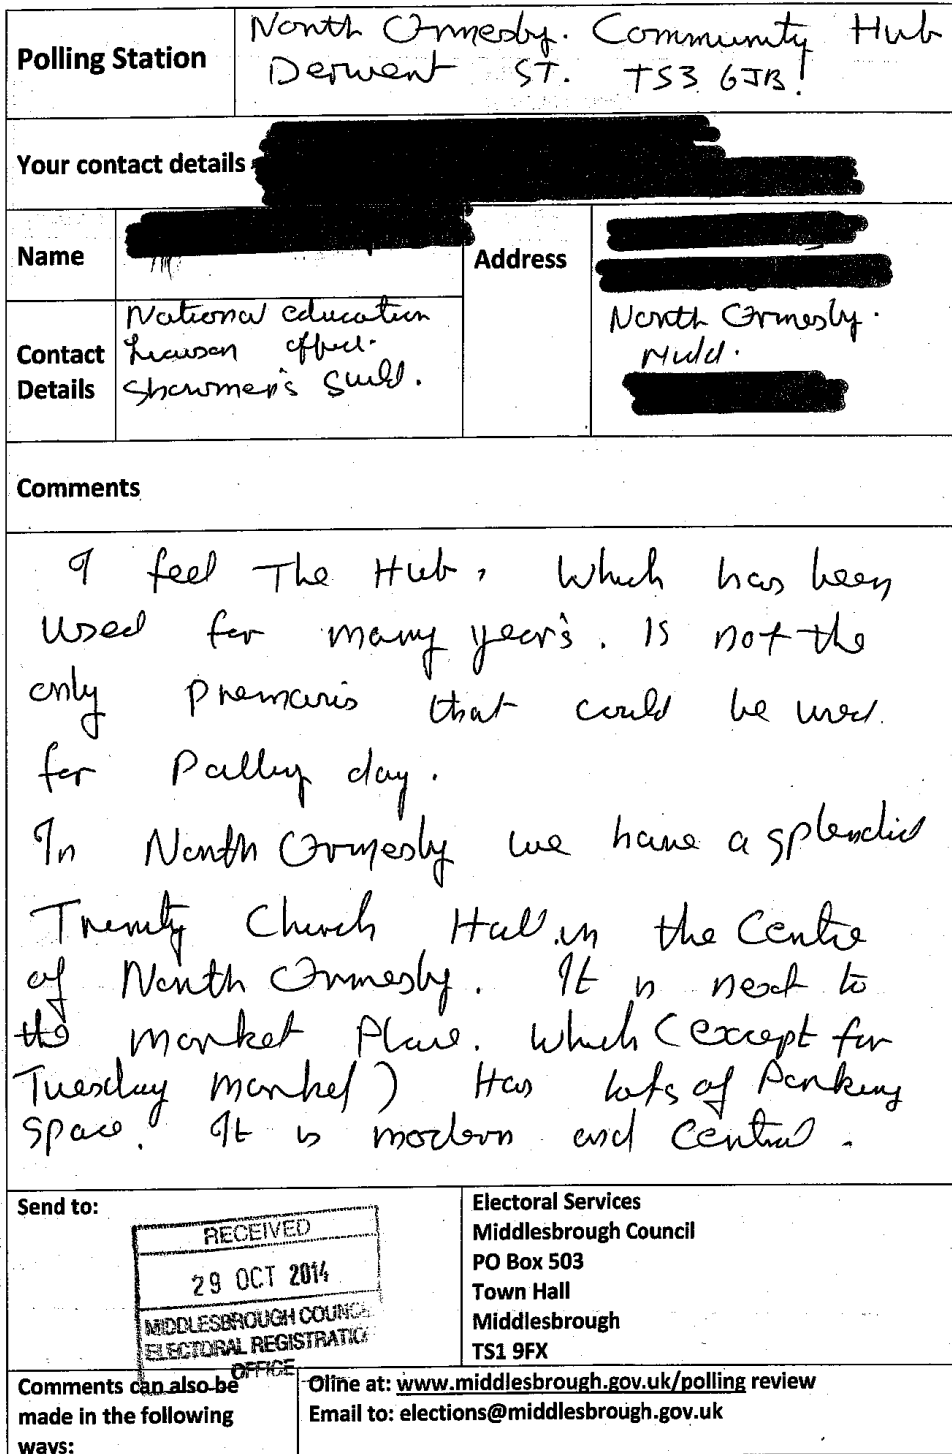 Polling Station
North Ormesby. Community Hub
Derwent ST. TS3 6JB!
Your contact details
Name
Address
North Ormesby.
Midd.
Contact
Details
National education
Liaison officer.
Showmen's Guild.
Comments
I feel The Hub, Which has been
used for many year's. Is not the
only Premisis that could be used
for Polling day.
In North Ormesby we have a splendid
Trinity Church Hall in the Centre
of North Ormesby. It is next to
the market Place. Which (except for
Tuesday market) Has lots of Parking
Space. It is modern and Central.
Send to:
RECEIVED
29 OCT 2014
MIDDLESBROUGH COUNCIL
ELECTORAL REGISTRATION
OFFICE
Electoral Services
Middlesbrough Council
PO Box 503
Town Hall
Middlesbrough
TS1 9FX
Comments can also be
made in the following
ways:
Oline at: www.middlesbrough.gov.uk/polling review
Email to: elections@middlesbrough.gov.uk